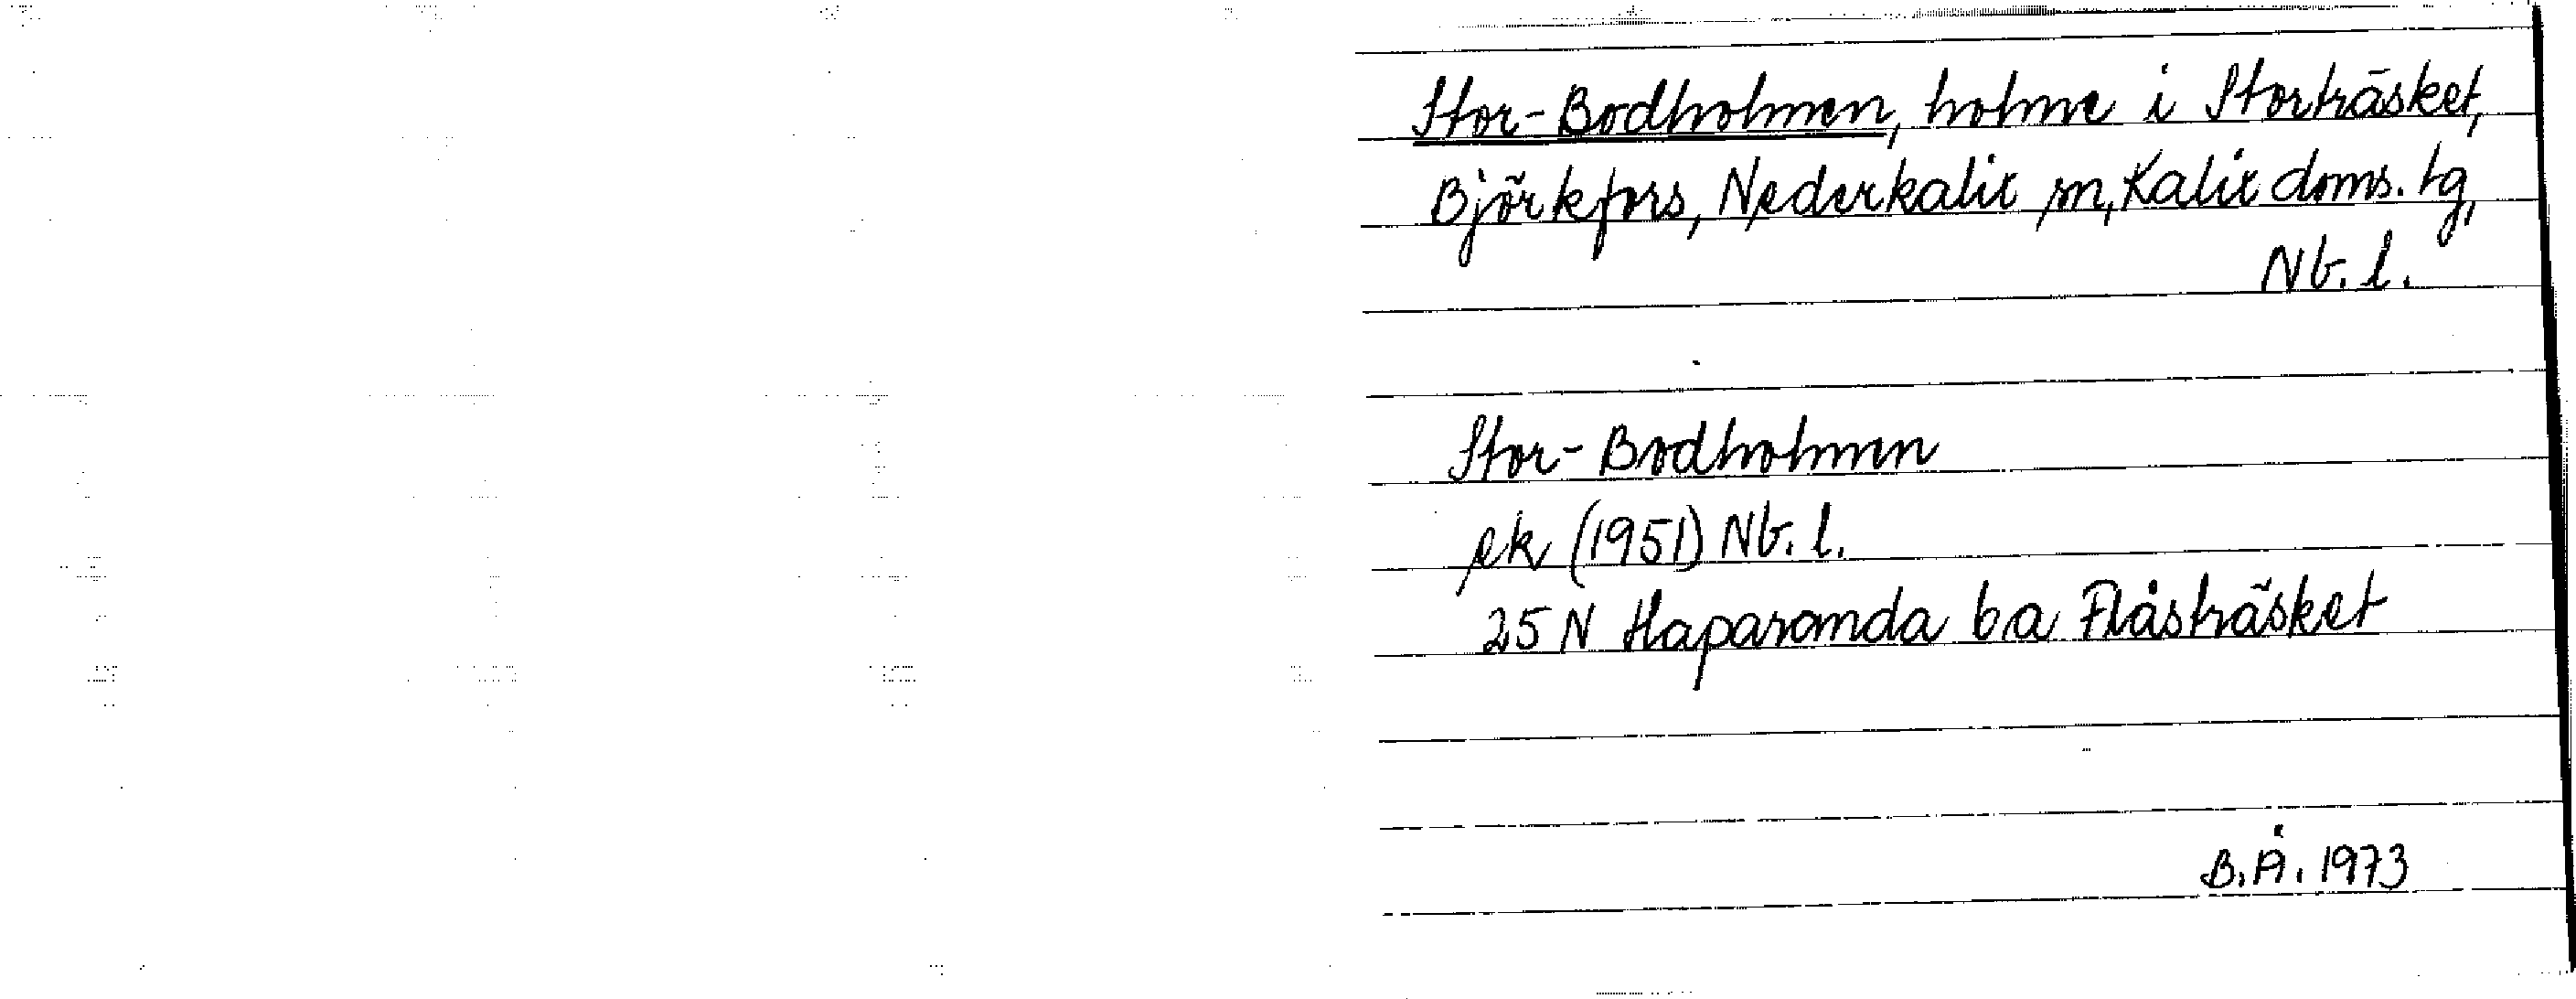 Stor-Bodholmen, holme i Storträsket,
Björkfors, Nederkalix sn, Kalix doms. tg,
Nb. l.
Stor-Bodholmen
ek (1951) Nb. l.
25 N Haparanda 6a Flåsträsket
B.Å. 1973